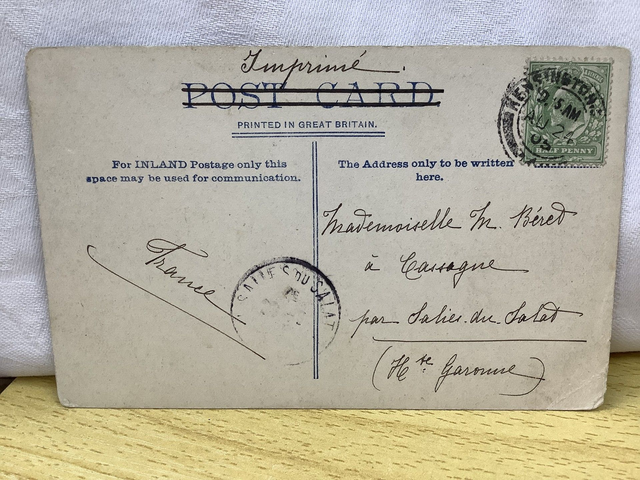 Imprimé.
POST CARD
PRINTED IN GREAT BRITAIN.
For INLAND Postage only this
space may be used for communication.
The Address only to be written
here.
KENSINGTON
HALF PENNY
Mademoiselle M. Béret
à Cassagne
par Salies-du-Salat
(Hte Garonne)
France
SALIES DU SALAT